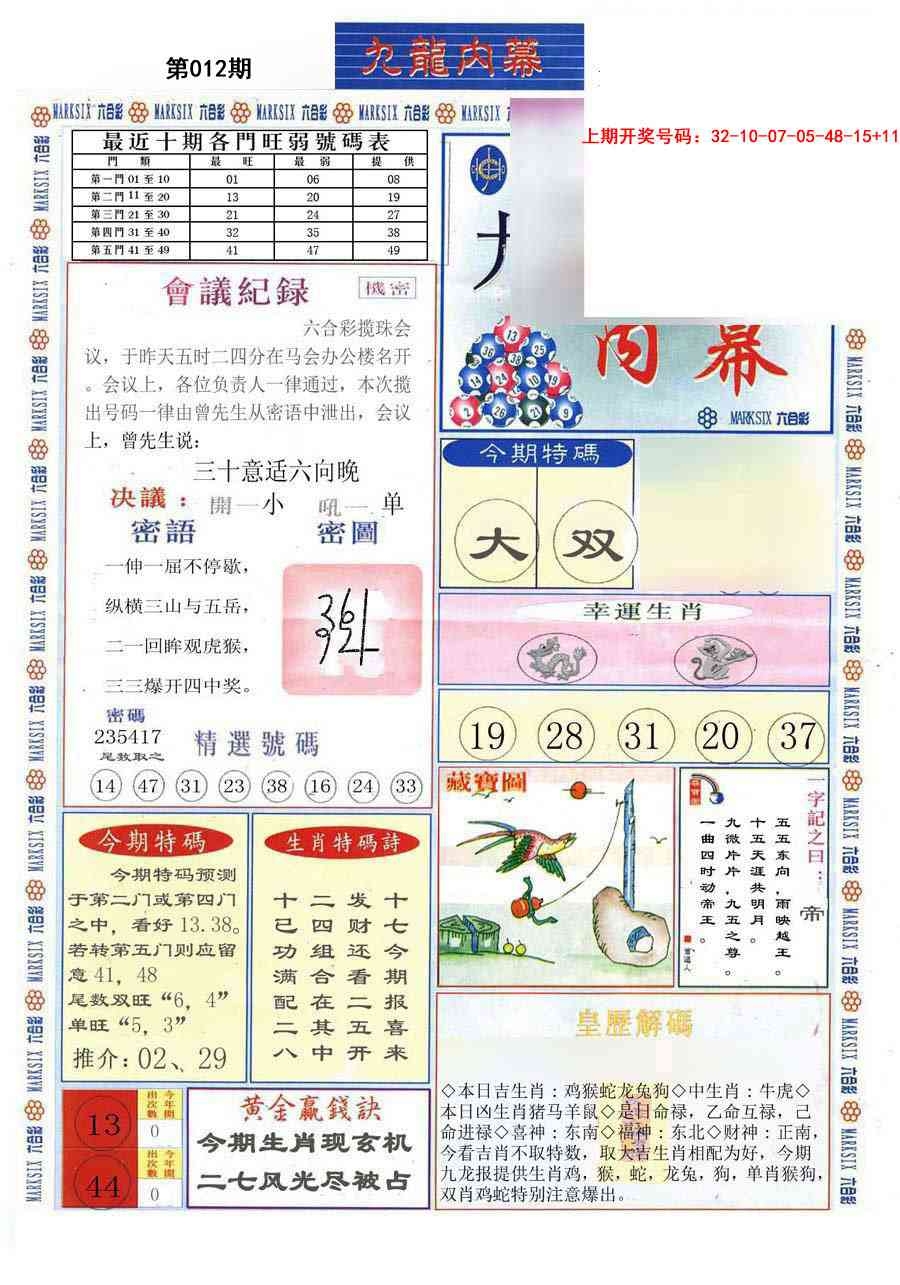 第012期
九龍内幕
MARKSIX 六合彩 MARKSIX 六合彩 MARKSIX 六合彩 MARKSIX 六合彩 MARKSIX
上期开奖号码：32-10-07-05-48-15+11
最近十期各門旺弱號碼表
門 類 最 旺 最 弱 提 供
第一門 01 至 10 01 06 08
第二門 11 至 20 13 20 19
第三門 21 至 30 21 24 27
第四門 31 至 40 32 35 38
第五門 41 至 49 41 47 49
會議紀録
機密
六合彩搅珠会
议，于昨天五时二四分在马会办公楼名开
。会议上，各位负责人一律通过，本次搅
出号码一律由曾先生从密语中泄出，会议
上，曾先生说：
三十意适六向晚
决議：開一小 吼一 单
密語 密圖
一伸一屈不停歇，
纵横三山与五岳，
二一回眸观虎猴，
三三爆开四中奖。
密碼
235417
尾数取之
精選號碼
14 47 31 23 38 16 24 33
内幕
13
36 38 25
14 24 10 19
2 26 21 9
MARKSIX 六合彩
今期特碼
大 双
幸運生肖
19 28 31 20 37
藏寶圖
一字記之曰：帝
五五东向，雨映越王。
十五天涯共明月。
九微片片，九五之尊。
一曲四时动帝王。
今期特碼
今期特码预测
于第二门或第四门
之中，看好 13.38。
若转第五门则应留
意 41，48
尾数双旺“6，4”
单旺“5，3”
推介：02、29
生肖特碼詩
十七今期报喜来
发财还看二五开
二四组合在其中
十已功满配二八
13 出次數 今年開 0
44 出次數 今年開 0
黄金赢錢訣
今期生肖现玄机
二七风光尽被占
皇歷解碼
◇本日吉生肖：鸡猴蛇龙兔狗◇中生肖：牛虎◇
本日凶生肖猪马羊鼠◇是日命禄，乙命互禄，己
命进禄◇喜神：东南◇福神：东北◇财神：正南，
今看吉肖不取特数，取大吉生肖相配为好，今期
九龙报提供生肖鸡，猴，蛇，龙兔，狗，单肖猴狗，
双肖鸡蛇特别注意爆出。